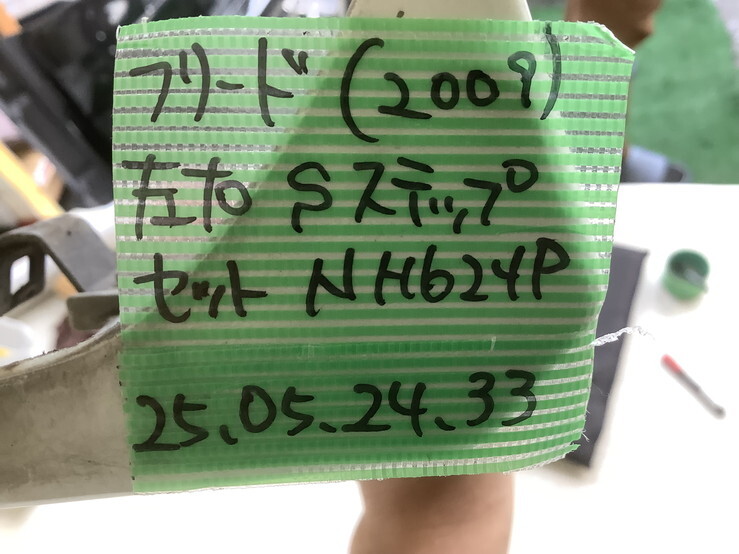 フリード (2009)
左右 Sステップ
セット NH624P
25.05.24.33